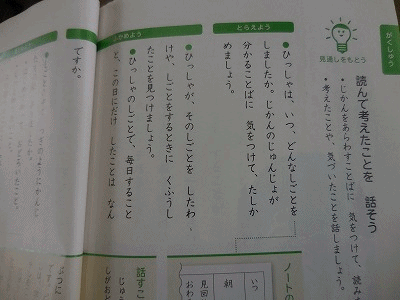 がくしゅう
見通しをもとう
読んで考えたことを 話そう
・じかんをあらわすことばに 気をつけて、読み
・考えたことや、気づいたことを話しましょう。
とらえよう
●ひっしゃは、いつ、どんなしごとを
しましたか。じかんのじゅんじょが
分かることばに 気をつけて、たしか
めましょう。
ふかめよう
●ひっしゃが、そのしごとを したわ
けや、しごとをするときに くふうし
たことを見つけましょう。
●ひっしゃのしごとで、毎日すること
と、この日にだけ したことは なん
ですか。
ノートの
いつ
朝
見回
おわ
話すこ
じゅう
しがおど
ぶつに